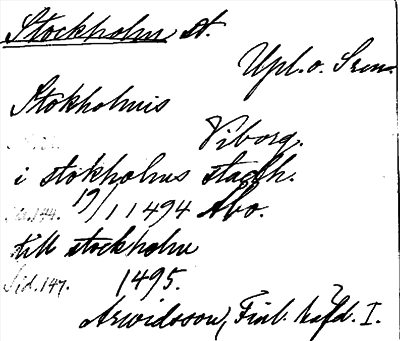 Stockholm, st.
Upl. o. Srm.
Stokholmis
Viborg.
i stokholms stadh.
Sid. 144. 19/1 1494 Åbo.
till stockholm
Sid. 147. 1495.
Arwidsson, Finl. häfd. I.